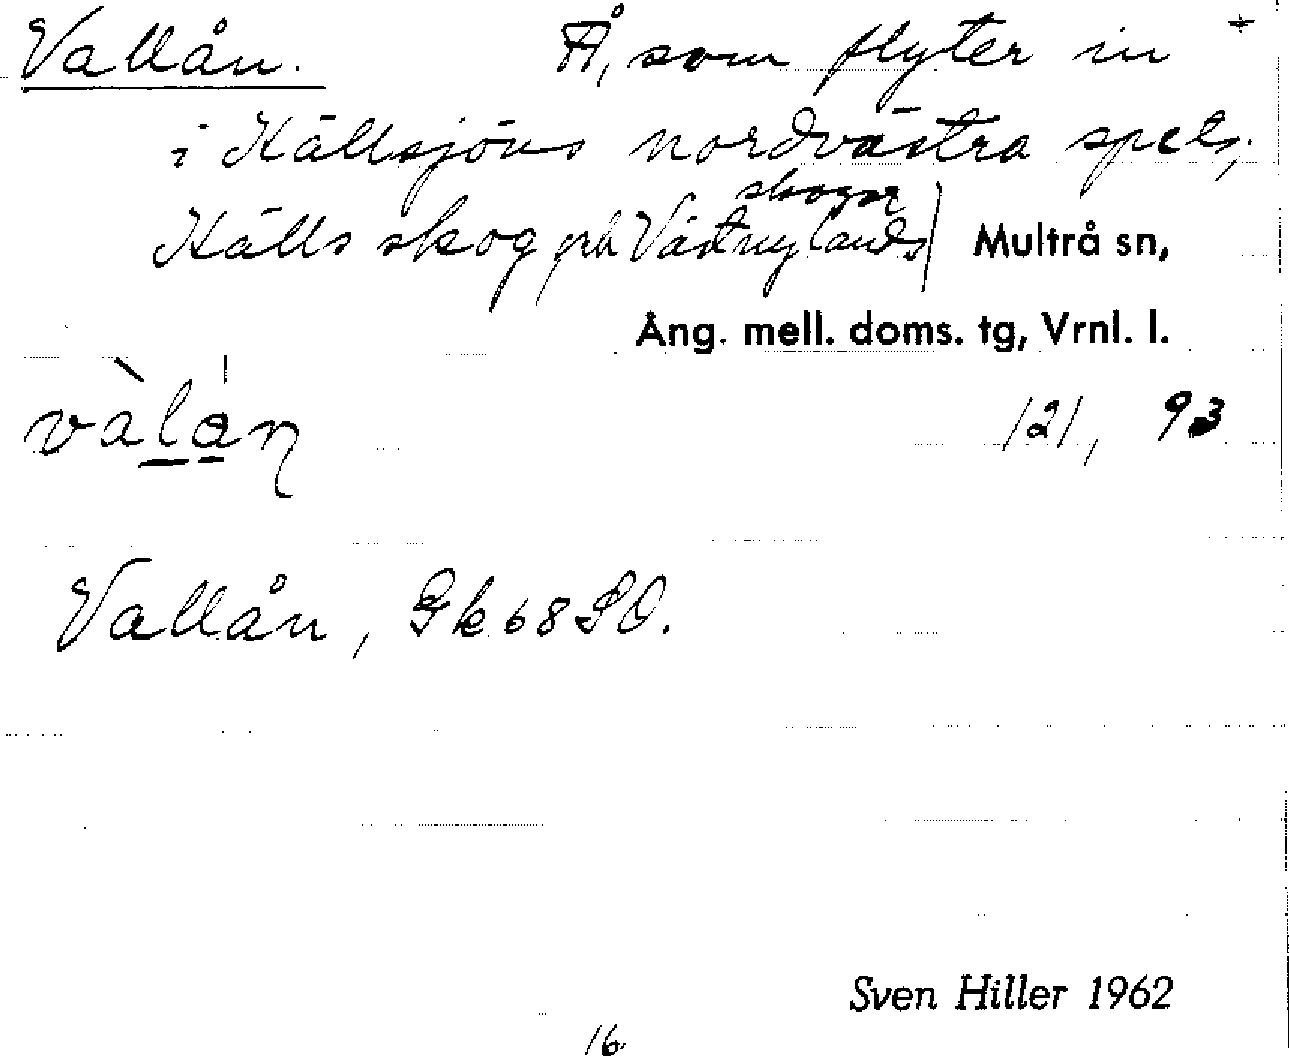 Vallån. Å, som flyter in +
i Källsjöns nordvästra spets,
Källs skog på Västnylands skogar Multrå sn,
Ång. mell. doms. tg, Vrnl. l.
vàlán 121, 93
Vallån, Gk 68 SO.
Sven Hiller 1962
16